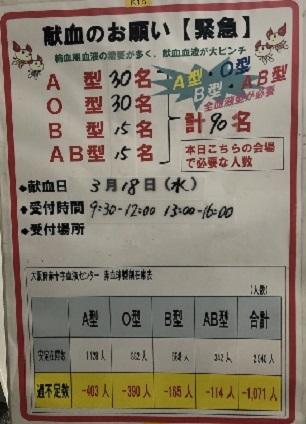 献血のお願い【緊急】
輸血用血液の需要が多く、献血血液が大ピンチ
A 型 30名
O 型 30名
B 型 15名
AB型 15名
A型・O型
B型・AB型
全血液型が必要
計90名
本日こちらの会場
で必要な人数
◆献血日 3月18日(水)
◆受付時間 9:30-12:00 13:00-16:00
◆受付場所
大阪府赤十字血液センター
(人数)
A型 O型 B型 AB型 合計
過不足数 -403人 -390人 -165人 -114人 -1,071人